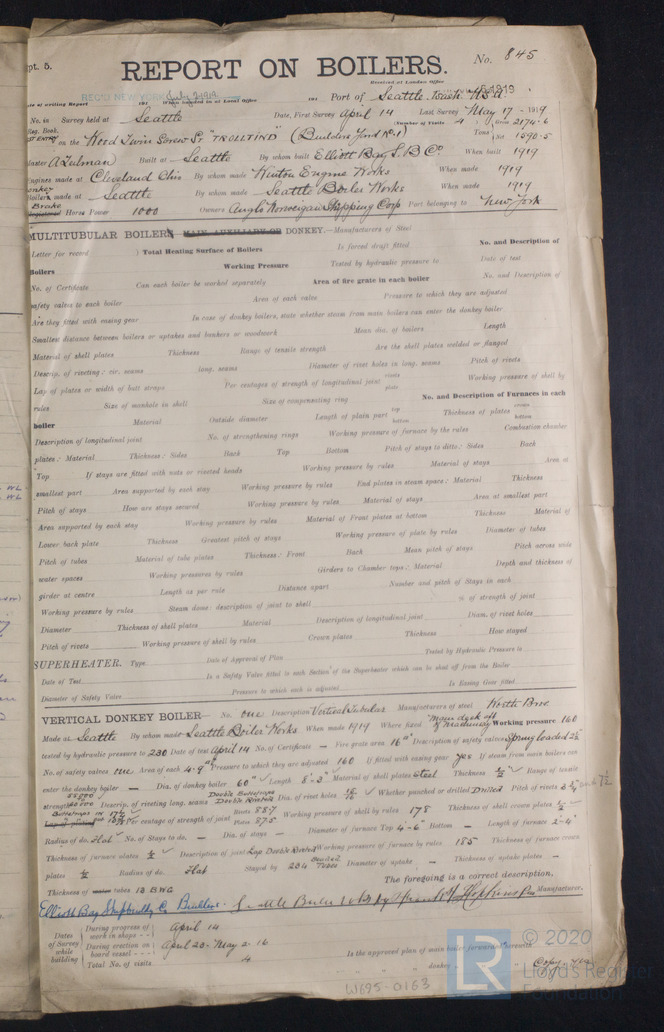 pt. 5.
REPORT ON BOILERS.
No. 845
Received at London Office
REC'D NEW YORK July 2 1919
Date of writing Report 191 When handed in at Local Office 191 Port of Seattle Wash. U.S.A.
No. in Survey held at Seattle Date, First Survey April 14 Last Survey May 17 - 1919
Reg. Book. (Number of Visits 4) Gross 2174.6
on the Wood Twin Screw Sr "TROLLTIND" (Builders Yard No. 1) Tons Net 1590.5
Master A Zulman Built at Seattle By whom built Elliott Bay S.B Co. When built 1919
Engines made at Cleveland Ohio By whom made Winton Engine Works When made 1919
Donkey Boilers made at Seattle By whom made Seattle Boiler Works When made 1919
Brake Registered Horse Power 1000 Owners Anglo Norwegian Shipping Corp Port belonging to New York
MULTITUBULAR BOILERS MAIN, AUXILIARY OR DONKEY.—Manufacturers of Steel
Letter for record ) Total Heating Surface of Boilers Is forced draft fitted No. and Description of
Boilers Working Pressure Tested by hydraulic pressure to Date of test
No. of Certificate Can each boiler be worked separately Area of fire grate in each boiler No. and Description of
safety valves to each boiler Area of each valve Pressure to which they are adjusted
Are they fitted with easing gear In case of donkey boilers, state whether steam from main boilers can enter the donkey boiler
Smallest distance between boilers or uptakes and bunkers or woodwork Mean dia. of boilers Length
Material of shell plates Thickness Range of tensile strength Are the shell plates welded or flanged
Descrip. of riveting: cir. seams long. seams Diameter of rivet holes in long. seams Pitch of rivets
Lap of plates or width of butt straps Per centages of strength of longitudinal joint rivets plate Working pressure of shell by
rules Size of manhole in shell Size of compensating ring No. and Description of Furnaces in each
boiler Material Outside diameter Length of plain part top bottom Thickness of plates crown bottom
Description of longitudinal joint No. of strengthening rings Working pressure of furnace by the rules Combustion chamber
plates: Material Thickness: Sides Back Top Bottom Pitch of stays to ditto: Sides Back
Top If stays are fitted with nuts or riveted heads Working pressure by rules Material of stays Area at
smallest part Area supported by each stay Working pressure by rules End plates in steam space: Material Thickness
Pitch of stays How are stays secured Working pressure by rules Material of stays Area at smallest part
Area supported by each stay Working pressure by rules Material of Front plates at bottom Thickness Material of
Lower back plate Thickness Greatest pitch of stays Working pressure of plate by rules Diameter of tubes
Pitch of tubes Material of tube plates Thickness: Front Back Mean pitch of stays Pitch across wide
water spaces Working pressures by rules Girders to Chamber tops: Material Depth and thickness of
girder at centre Length as per rule Distance apart Number and pitch of Stays in each
Working pressure by rules Steam dome: description of joint to shell % of strength of joint
Diameter Thickness of shell plates Material Description of longitudinal joint Diam. of rivet holes
Pitch of rivets Working pressure of shell by rules Crown plates Thickness How stayed
SUPERHEATER. Type Date of Approval of Plan Tested by Hydraulic Pressure to
Date of Test Is a Safety Valve fitted to each Section of the Superheater which can be shut off from the Boiler
Diameter of Safety Valve Pressure to which each is adjusted Is Easing Gear fitted
VERTICAL DONKEY BOILER— No. one Description Vertical Tubular Manufacturers of steel Worth Bros
Made at Seattle By whom made Seattle Boiler Works When made 1919 Where fixed Main deck aft of Machinery Working pressure 160
tested by hydraulic pressure to 230 Date of test April 14 No. of Certificate — Fire grate area 16 Description of safety valves Spring loaded 2½
No. of safety valves one Area of each 4.9 Pressure to which they are adjusted 160 If fitted with easing gear yes If steam from main boilers can
enter the donkey boiler — Dia. of donkey boiler 60" Length 8'-3" Material of shell plates steel Thickness ½ Range of tensile
strength 55000 Descrip. of riveting long. seams Double Buttstraps Double Riveted Dia. of rivet holes Whether punched or drilled Drilled Pitch of rivets
Per centage of strength of joint Rivets 88.7 Plates 87.5 Working pressure of shell by rules 178 Thickness of shell crown plates ½
Radius of do. Flat No. of Stays to do. — Dia. of stays — Diameter of furnace Top 4-6" Bottom — Length of furnace 2'-4"
Thickness of furnace plates ½ Description of joint Lap Double Riveted Working pressure of furnace by rules 185 Thickness of furnace crown
plates ½ Radius of do. Flat Stayed by 234 Beaded Tubes Diameter of uptake — Thickness of uptake plates —
Thickness of water tubes 13 BWG The foregoing is a correct description,
Elliott Bay Shipbuildg Co Builders. Seattle Boiler Wks by Frank H Hopkins Pres Manufacturer.
Dates of Survey while building
During progress of work in shops - - April 14
During erection on board vessel - - - April 23 - May 2 - 16
Total No. of visits 4
Is the approved plan of main boiler forwarded herewith
" " " donkey " " " Copy. yes
W695-0163
LR © 2020
Lloyd's Register
Foundation